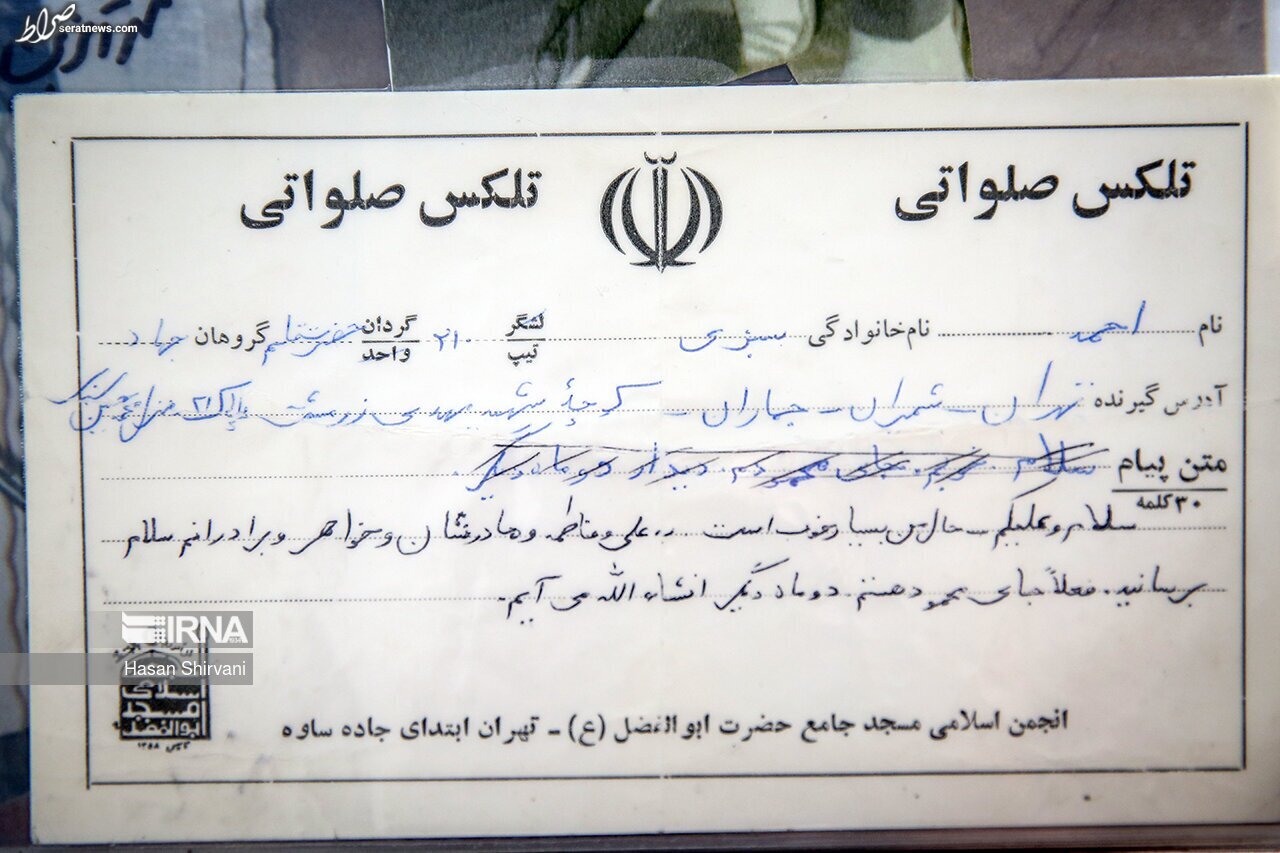 صراط
seratnews.com
تلکس صلواتی تلکس صلواتی
نام احمد نام خانوادگی سبزی لشگر تیپ ۲۱ گردان واحد گروهان جهاد
آدرس گیرنده تهران - شمیران - جماران - کوچهٔ شهید مهدی پلاک ۲۱ منزل
متن پیام سلام جای محمودم. دیدار دو ماه دیگر.
۳۰ کلمه
سلام و علیکم - حال من بسیار خوب است .. علی و فاطمه و مادرشان و خواهر و برادرانم سلام
برسانید. فعلاً جای محمود هستم. دو ماه دیگر انشاء الله می آیم.
IRNA
Hasan Shirvani
انجمن اسلامی مسجد جامع حضرت ابوالفضل (ع) - تهران ابتدای جاده ساوه